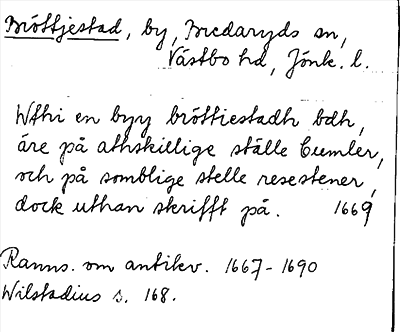 Bröttjestad, by, Bredaryds sn,
Västbo hd, Jönk. l.
Wthi en byy bröttiestadh bdh,
äre på athskillige ställe Cumler,
och på somblige stelle resestener,
dock uthan skrifft på. 1669
Ranns. om antikv. 1667-1690
Wilstadius s. 168.